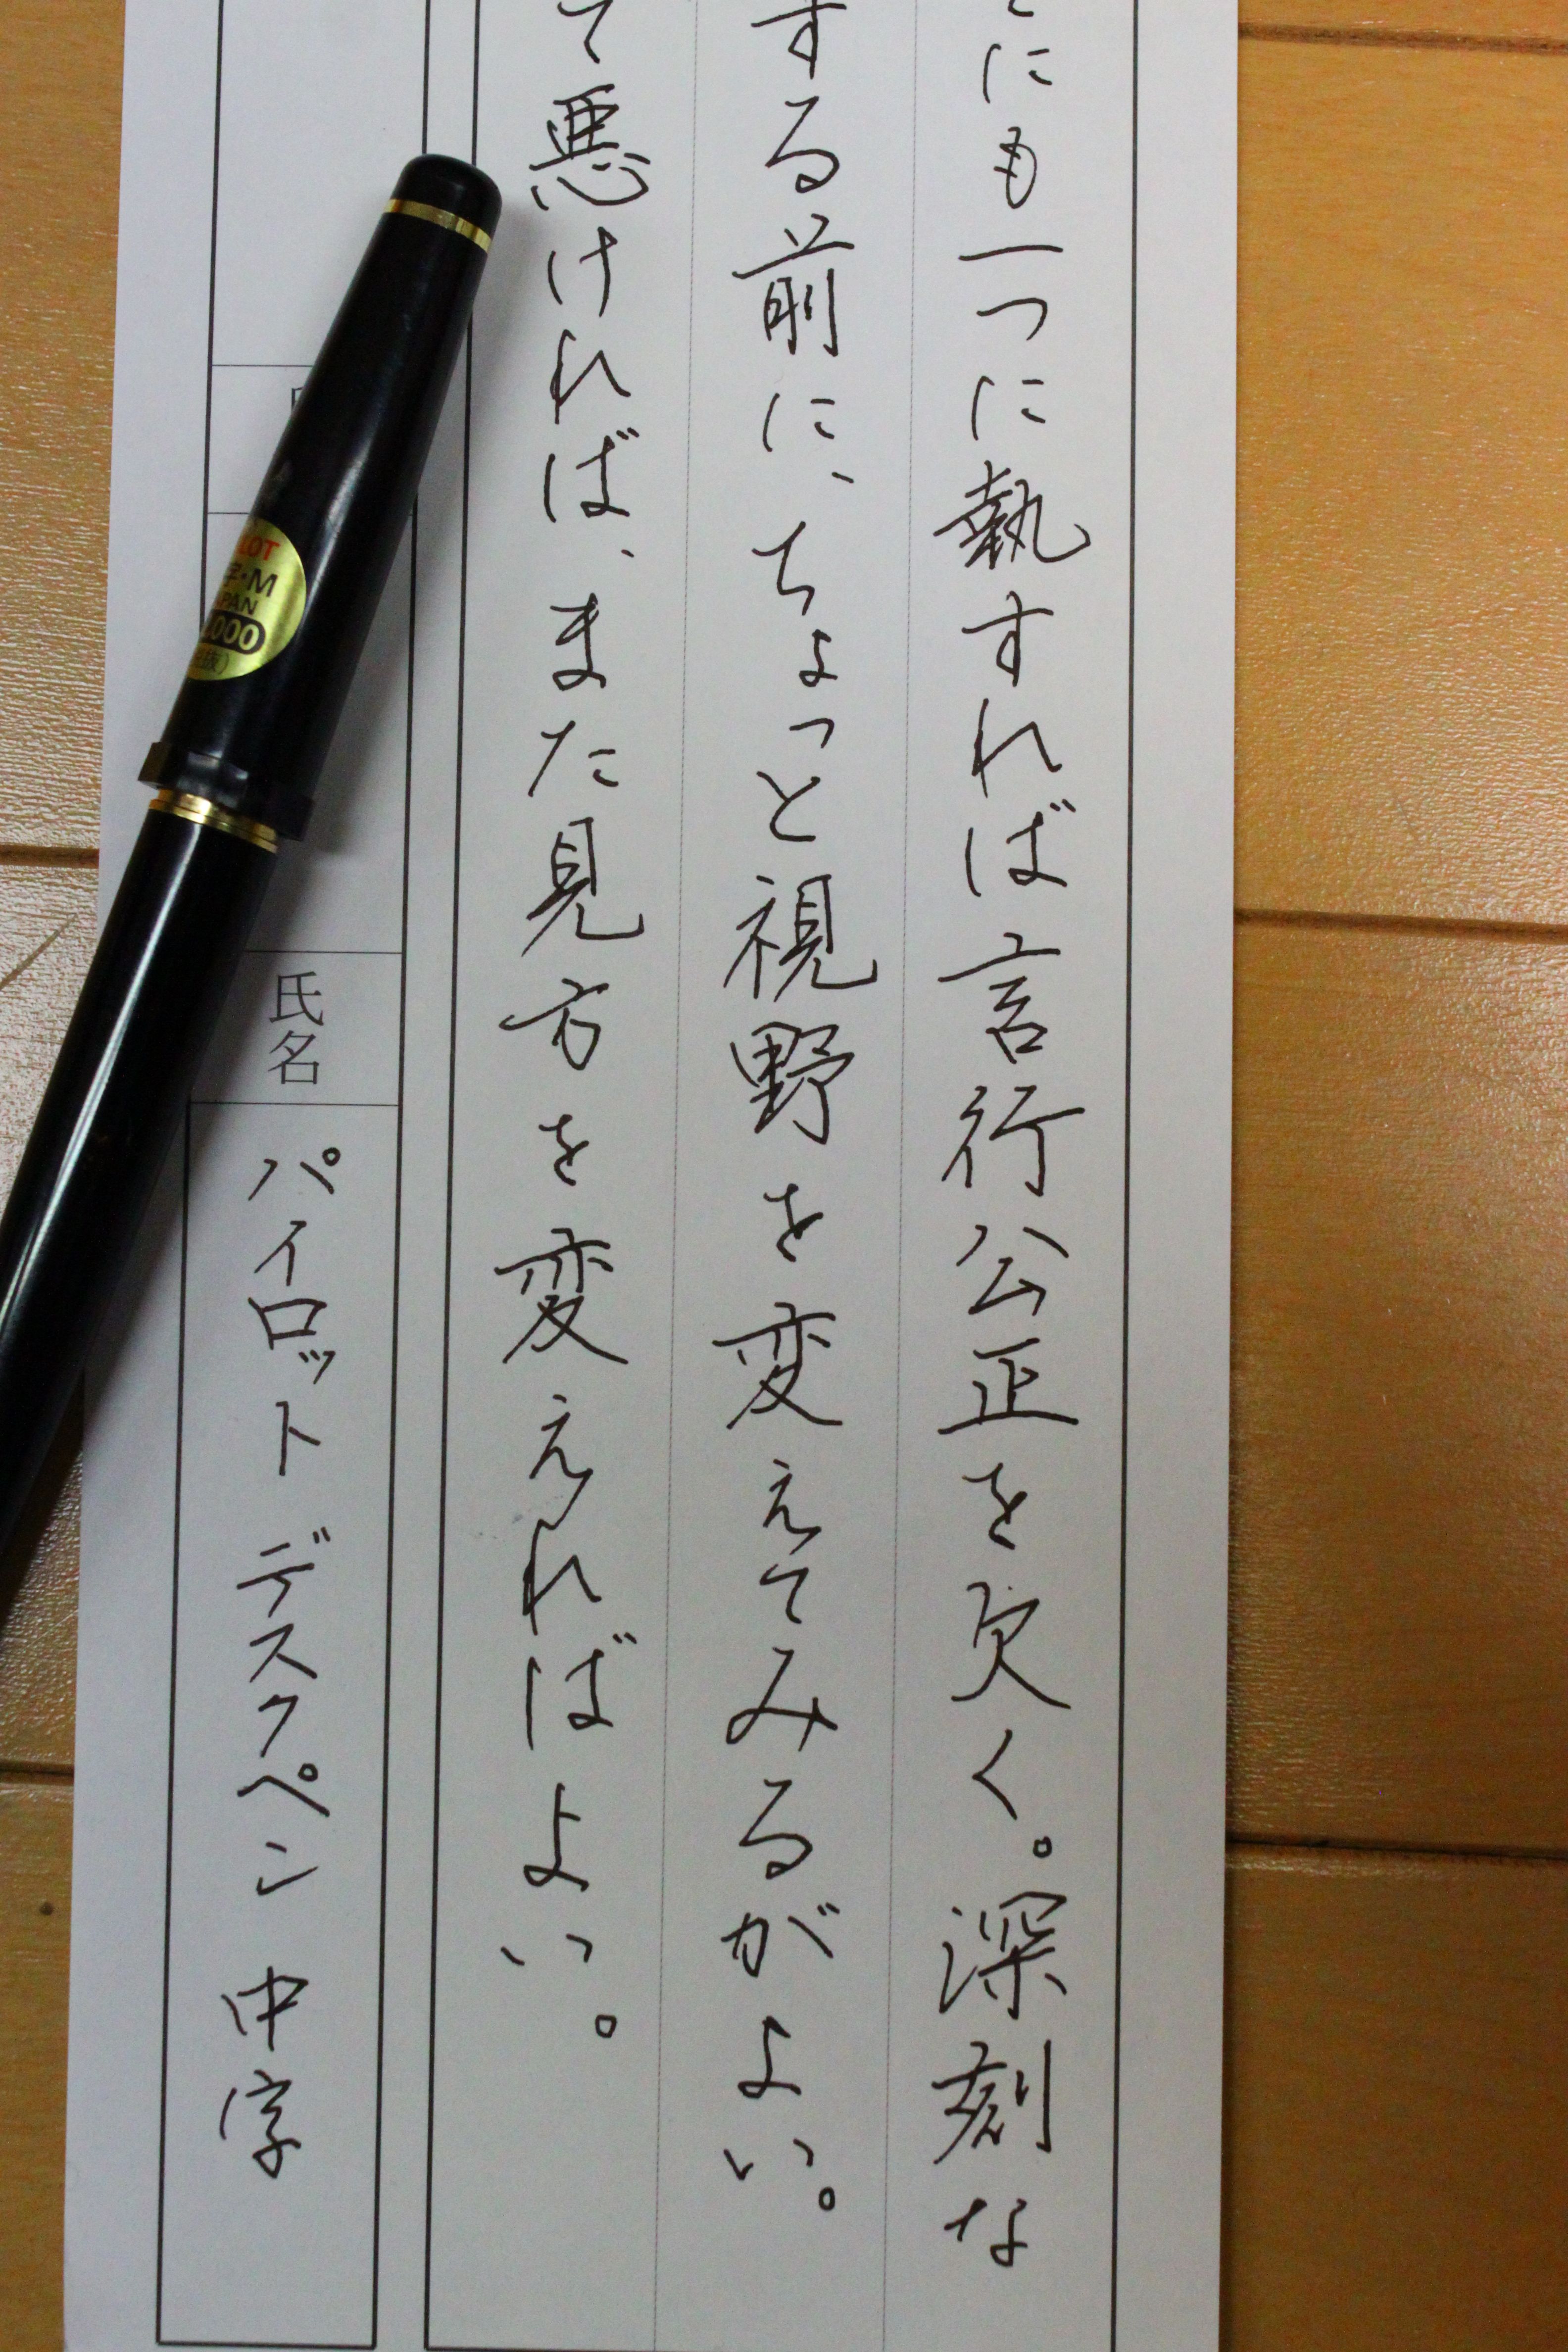 にも一つに執すれば言行公正を欠く。深刻な
する前に、ちょっと視野を変えてみるがよい。
て悪ければ、また見方を変えればよい。
氏名
パイロット デスクペン 中字
LOT
字・M
PAN
000
抜)